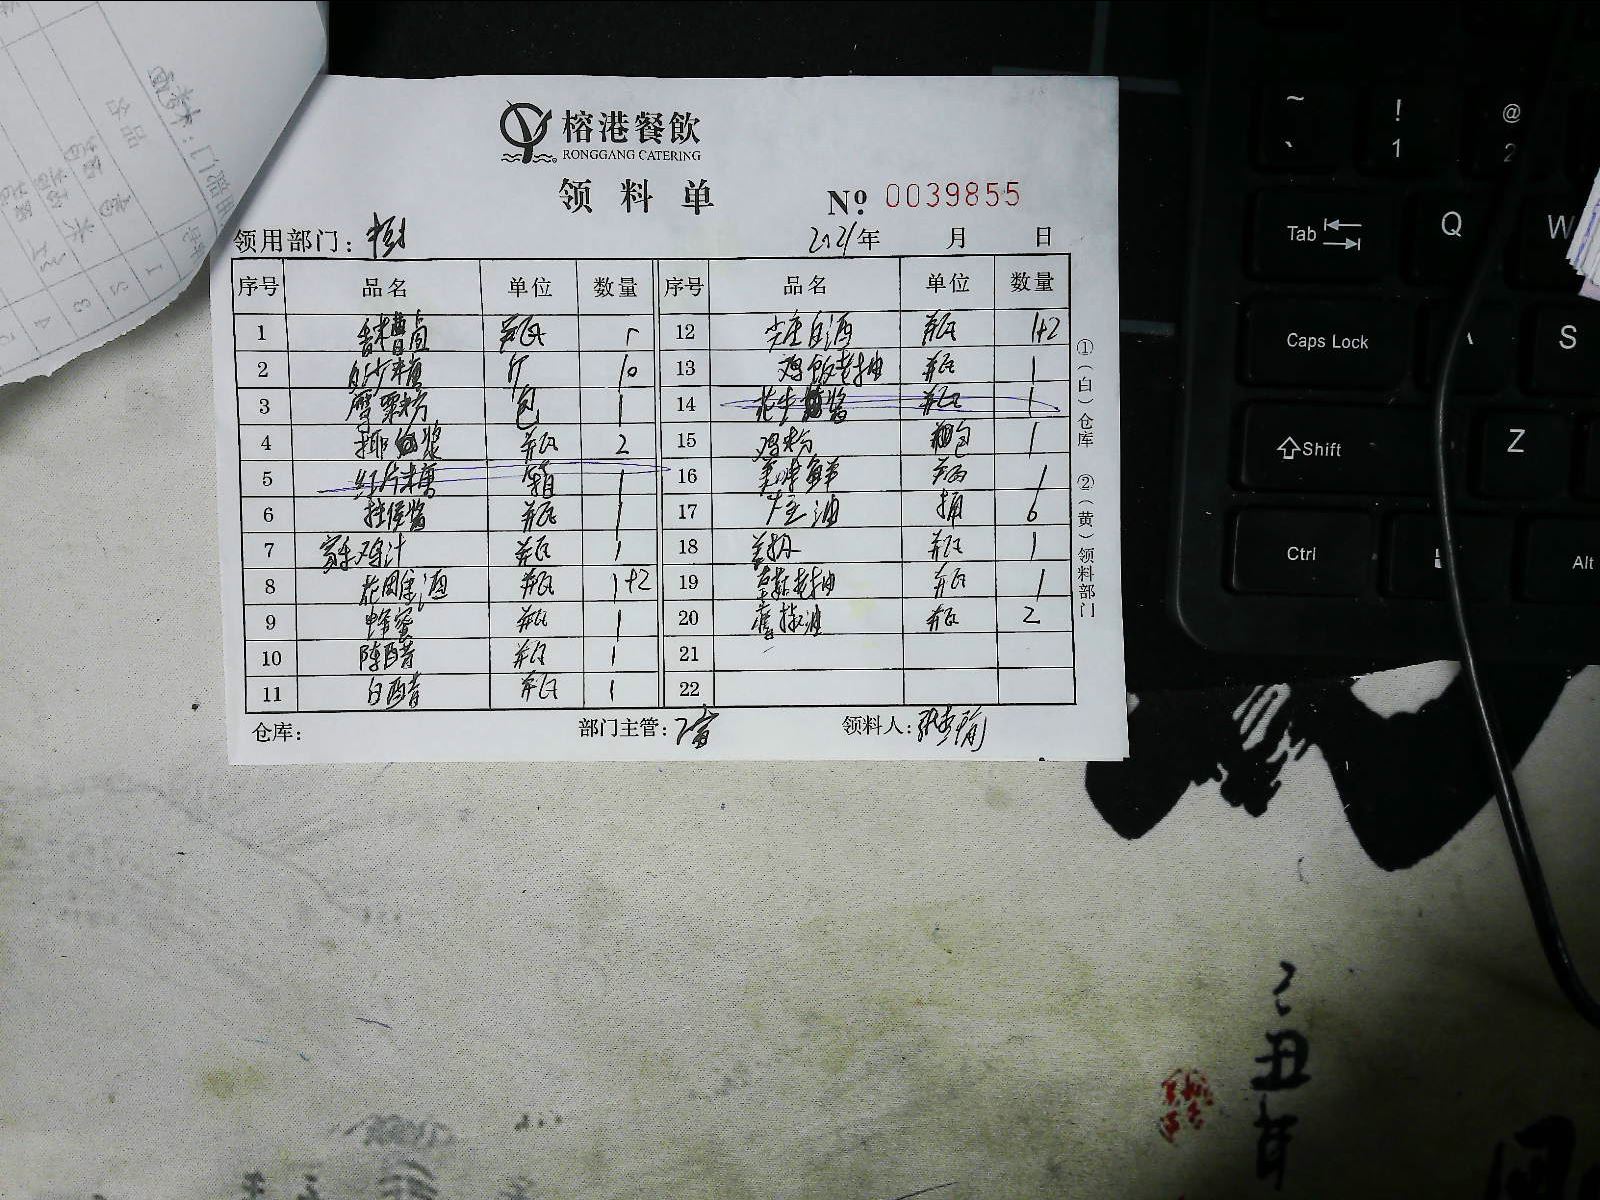 榕港餐飲
RONGGANG CATERING
领料单
Nº 0039855
领用部门:
2021年 月 日
序号 品名 单位 数量 序号 品名 单位 数量
1 香槽卤 瓶 5 12 尖庄白酒 瓶 1+2
2 白沙糖 斤 10 13 鸡饭老抽 瓶 1
3 鹰粟粉 包 1 14 花生酱 瓶 1
4 椰浆 瓶 2 15 鸡粉 包 1
5 红片糖 箱 1 16 美味鲜 1
6 拄侯酱 瓶 1 17 生油 桶 6
7 家乐鸡汁 瓶 1 18 瓶 1
8 花周金酒 瓶 1+2 19 草菇老抽 瓶 1
9 蜂蜜 瓶 1 20 藤椒油 瓶 2
10 陈醋 瓶 1 21
11 白醋 瓶 1 22
仓库: 部门主管: 领料人:
①(白)仓库 ②(黄)领料部门
品名
~ ` ! 1 @ 2
Tab Q W
Caps Lock A S
Shift Z
Ctrl Alt
丑